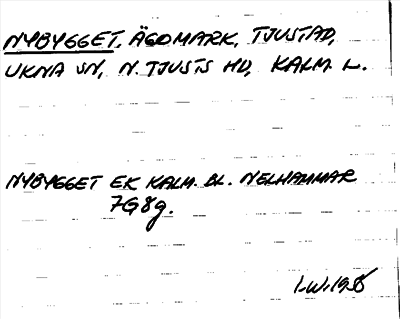 NYBYGGET, ÄGOMARK, TJUSTAD,
UKNA SN, N. TJUSTS HD, KALM. L.
NYBYGGET EK KALM. BL. NELHAMMAR
7G8g.
I.W. 1958